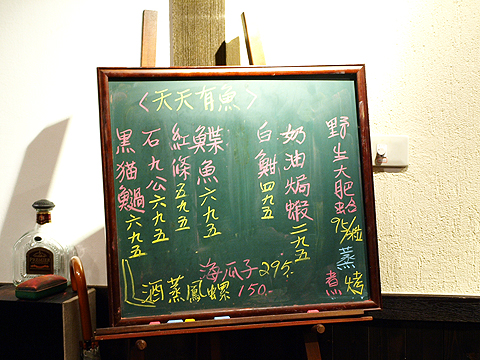 〈天天有魚〉
野生大肥蛤 95/粒 蒸 煮 烤
奶油焗蝦 二九五
白鮒 四九五
鰈魚 六九五
紅條 五九五
石九公 六九五
黑猫 六九五
海瓜子 295.
酒蒸鳳螺 150.